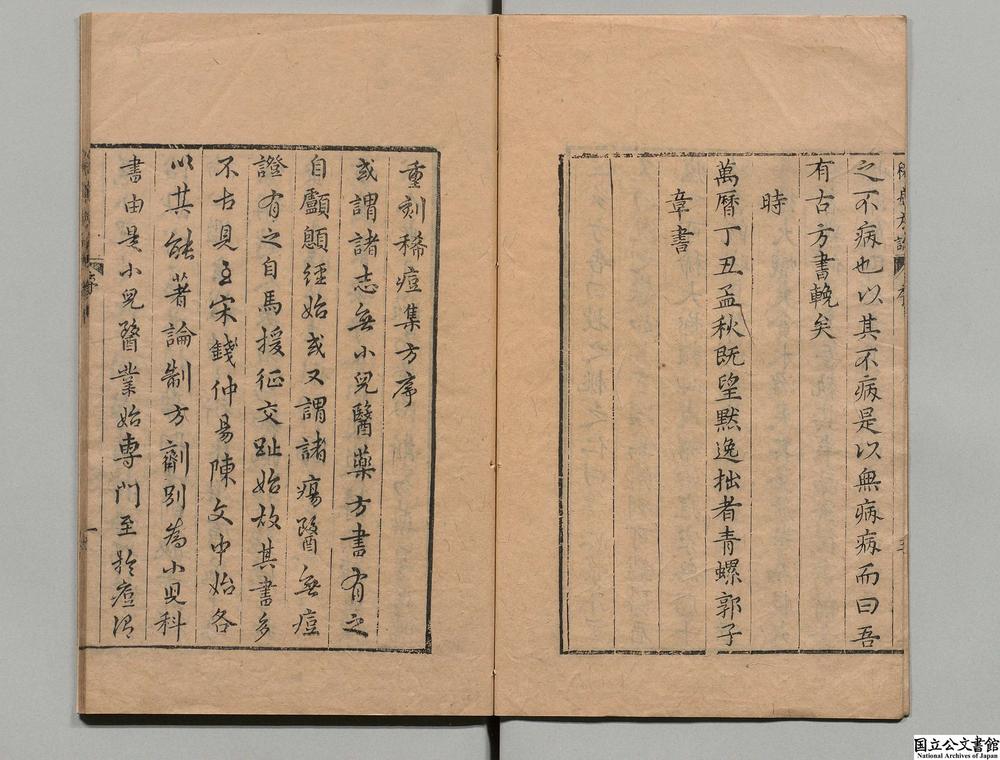 之不病也以其不病是以無病病而曰吾
有古方書輓矣
時
萬曆丁丑孟秋既望黙逸拙者青螺郭子
章書
重刻稀痘集方序
或謂諸志無小兒醫藥方書有之
自顱顖經始或又謂諸瘍醫無痘
證有之自馬援征交趾始故其書多
不古見至宋錢仲昜陳文中始各
以其能著論制方劑別為小兒科
書由是小兒醫業始專門至於痘
国立公文書館
National Archives of Japan